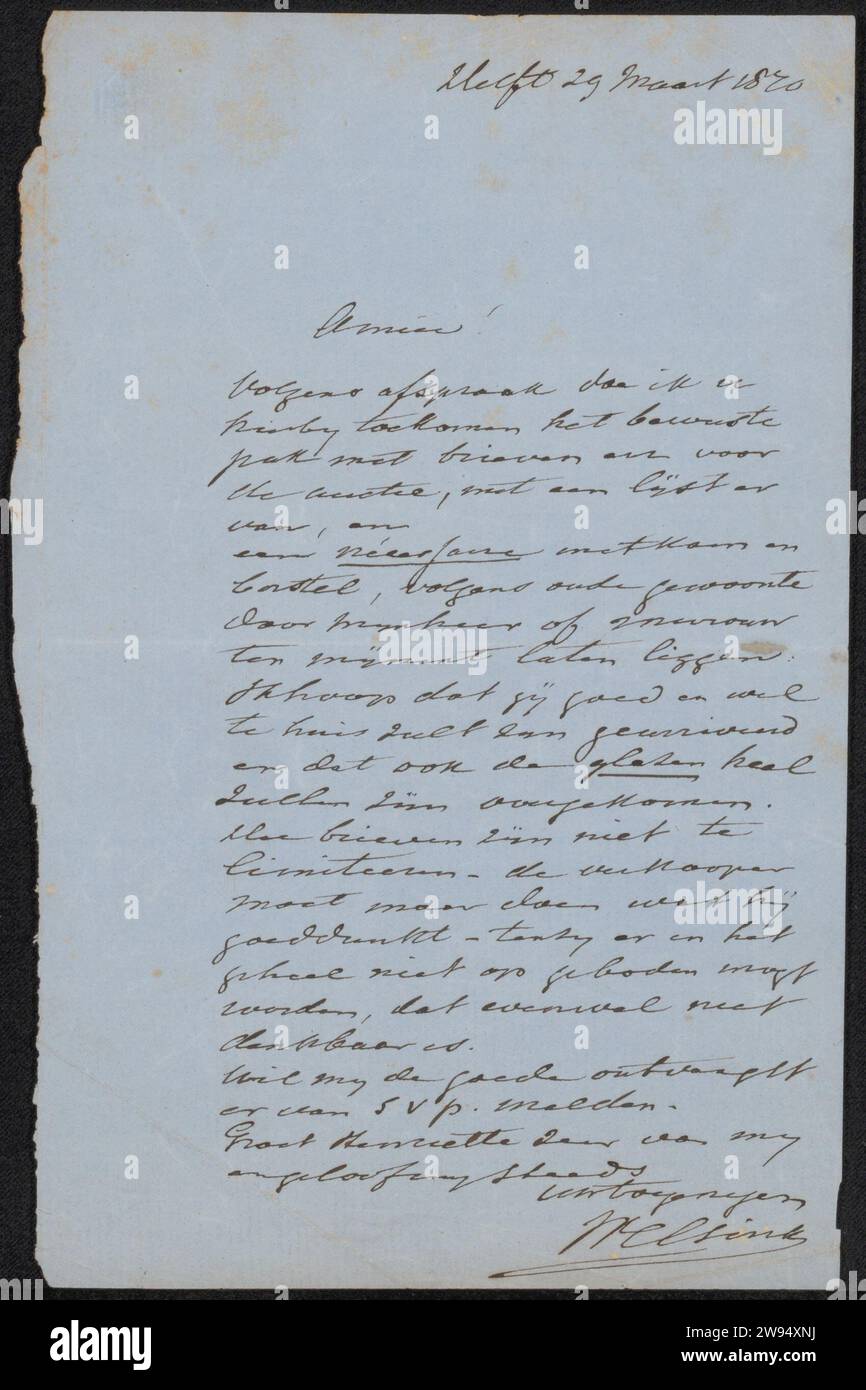 Delft 29 Maart 1870
Amice!
Volgens afspraak doe ik u
hierby toekomen het bewuste
pak met brieven en voor
de auctie, met een lijst er
van, en
een néces̲s̲aire met kam en
borstel, volgens oude gewoonte
door mynheer of mevrouw
ten mijnent laten liggen.
Ik hoop dat gij goed en wel
te huis zult zyn gearriveerd
en dat ook de glazen heel
zullen zijn overgekomen.
De brieven zijn niet te
limiteeren - de verkooper
moet maar doen wat hij
goeddunkt - tenzy er in het
geheel niet op geboden mogt
worden, dat evenwel niet
denkbaar is.
Wil my de goede ontvangst
er van s v p. melden.
Groet Henriette zeer van my
en geloof my steeds
alamy
a
alamy
Image ID: 2W94XNJ
www.alamy.com